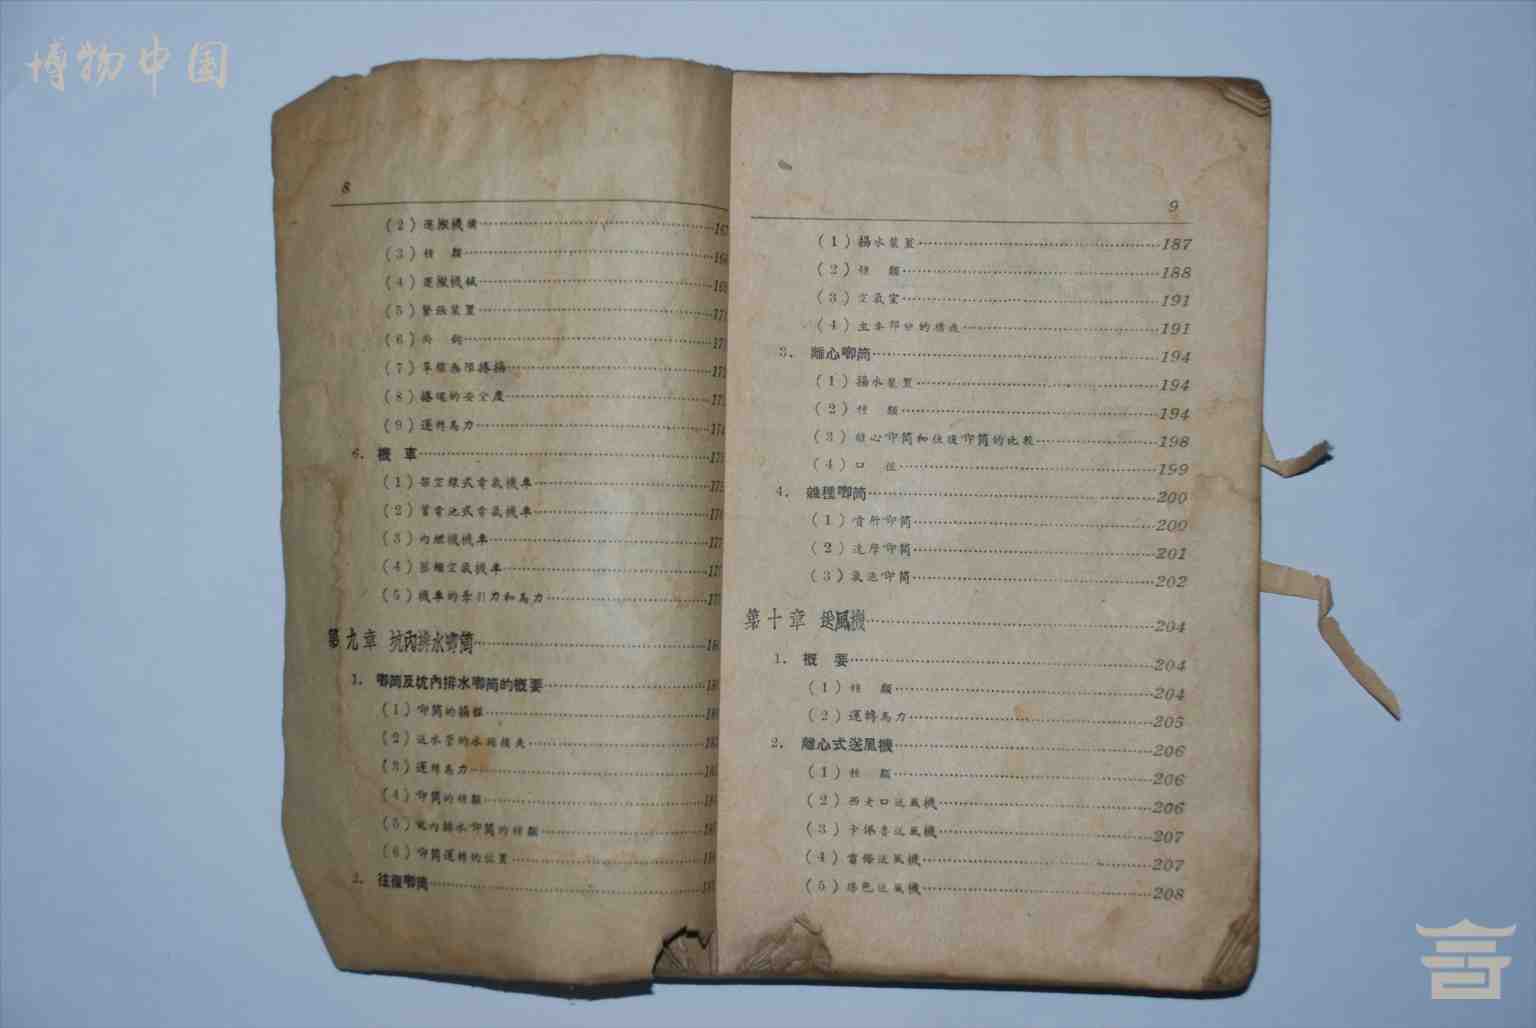 博物中国
8
(2) 運搬機構
(3) 種 類
(4) 運搬機械
(5) 緊張裝置
(6) 向 鉤
(7) 單線無限捲揚
(8) 捲繩的安全度
(9) 運轉馬力
6. 機 車
(1) 架空線式電氣機車
(2) 蓄電池式電氣機車
(3) 內燃機機車 177
(4) 壓縮空氣機車
(5) 機車的牽引力和馬力
第九章 坑內排水喞筒
1. 喞筒及坑內排水喞筒的概要
(1) 喞筒的揚程
(2) 送水管的水頭損失
(3) 運轉馬力
(4) 喞筒的種類
(5) 坑內排水喞筒的種類
(6) 喞筒運轉的位置
2. 往復喞筒 187
9
(1) 揚水裝置 187
(2) 種 類 188
(3) 空氣室 191
(4) 主要部分的構造 191
3. 離心喞筒 194
(1) 揚水裝置 194
(2) 種 類 194
(3) 離心喞筒和往復喞筒的比較 198
(4) 口 徑 199
4. 雜種喞筒 200
(1) 噴射喞筒 200
(2) 達摩喞筒 201
(3) 氣送喞筒 202
第十章 送風機 204
1. 概 要 204
(1) 種 類 204
(2) 運轉馬力 205
2. 離心式送風機 206
(1) 種 類 206
(2) 西老口送風機 206
(3) 卡佩魯送風機 207
(4) 送風機 207
(5) 送風機 208